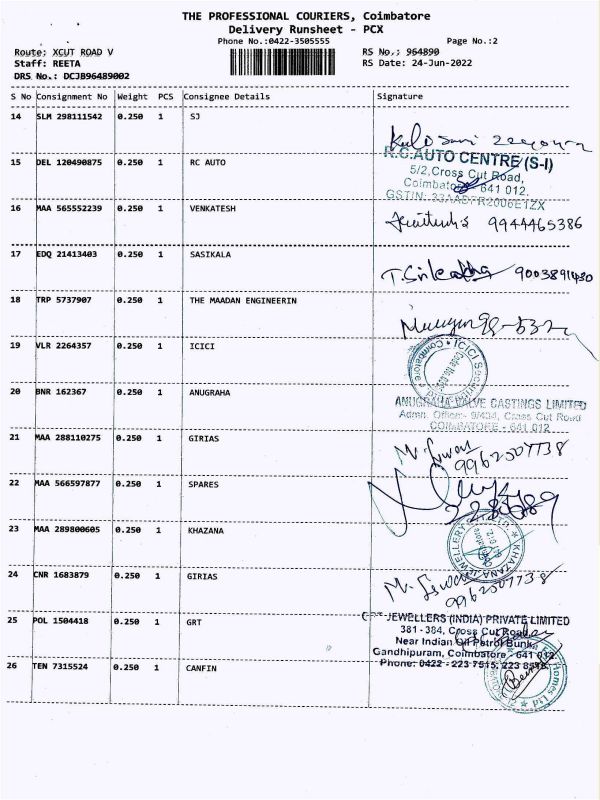 THE PROFESSIONAL COURIERS, Coimbatore
Delivery Runsheet - PCX
Phone No.:0422-3505555 Page No.:2
Route: XCUT ROAD V RS No.: 964890
Staff: REETA RS Date: 24-Jun-2022
DRS No.: DCJB96489002
S No Consignment No Weight PCS Consignee Details Signature
14 SLM 298111542 0.250 1 SJ
15 DEL 120490875 0.250 1 RC AUTO
R.C.AUTO CENTRE (S-I)
5/2,Cross Cut Road,
Coimbatore 641 012.
GSTIN: 33AADFR2006E1ZX
16 MAA 565552239 0.250 1 VENKATESH
9944465386
17 EDQ 21413403 0.250 1 SASIKALA
18 TRP 5737907 0.250 1 THE MAADAN ENGINEERIN
19 VLR 2264357 0.250 1 ICICI
20 BNR 162367 0.250 1 ANUGRAHA
ANUGRAHA VALVE CASTINGS LIMITED
Admn. Office:- 9/434, Cross Cut Road
COIMBATORE - 641 012
21 MAA 288110275 0.250 1 GIRIAS
9962507738
22 MAA 566597877 0.250 1 SPARES
23 MAA 289800605 0.250 1 KHAZANA
KHAZANA JEWELLERY
24 CNR 1683879 0.250 1 GIRIAS
9962507738
25 POL 1504418 0.250 1 GRT
JEWELLERS (INDIA) PRIVATE LIMITED
381 - 384, Cross Cut Road,
Near Indian Oil Petrol Bunk,
Gandhipuram, Coimbatore - 641 012.
Phone: 0422 - 223 7515, 223
26 TEN 7315524 0.250 1 CANFIN